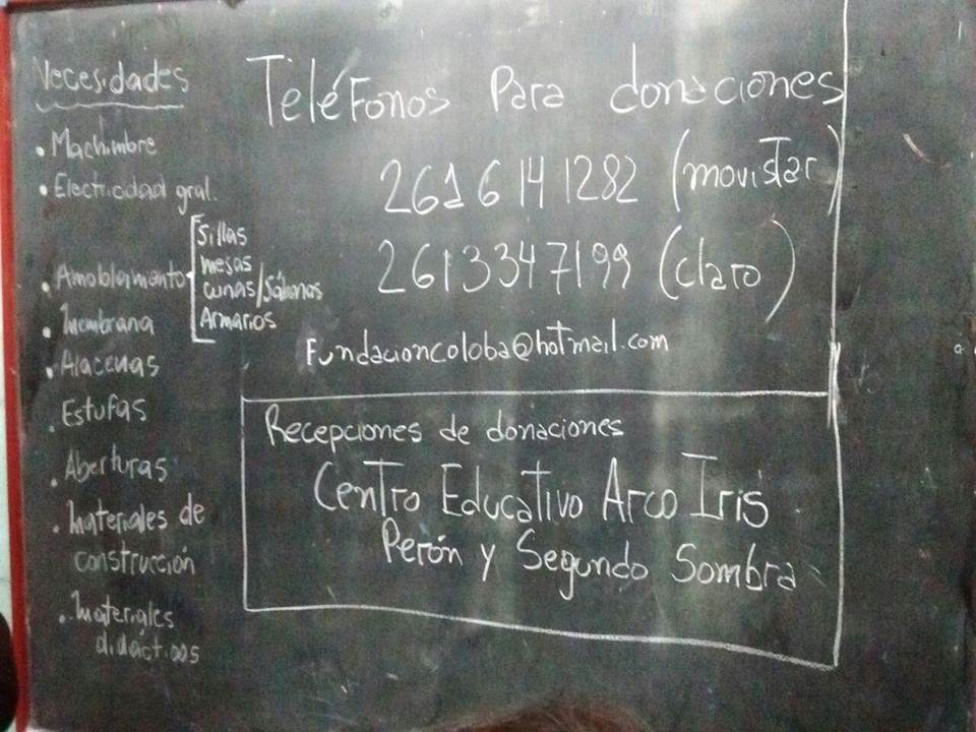 Necesidades
• Machimbre
• Electricidad gral.
• Amoblamiento
Sillas
mesas
cunas/Sábanas
Armarios
• Membrana
• Alacenas
• Estufas
• Aberturas
• Materiales de
construcción
• Materiales
didácticos
Teléfonos Para donaciones
261 6 141282 (movistar)
2613347199 (claro)
Fundacioncoloba@hotmail.com
Recepciones de donaciones
Centro Educativo Arco Iris
Perón y Segundo Sombra